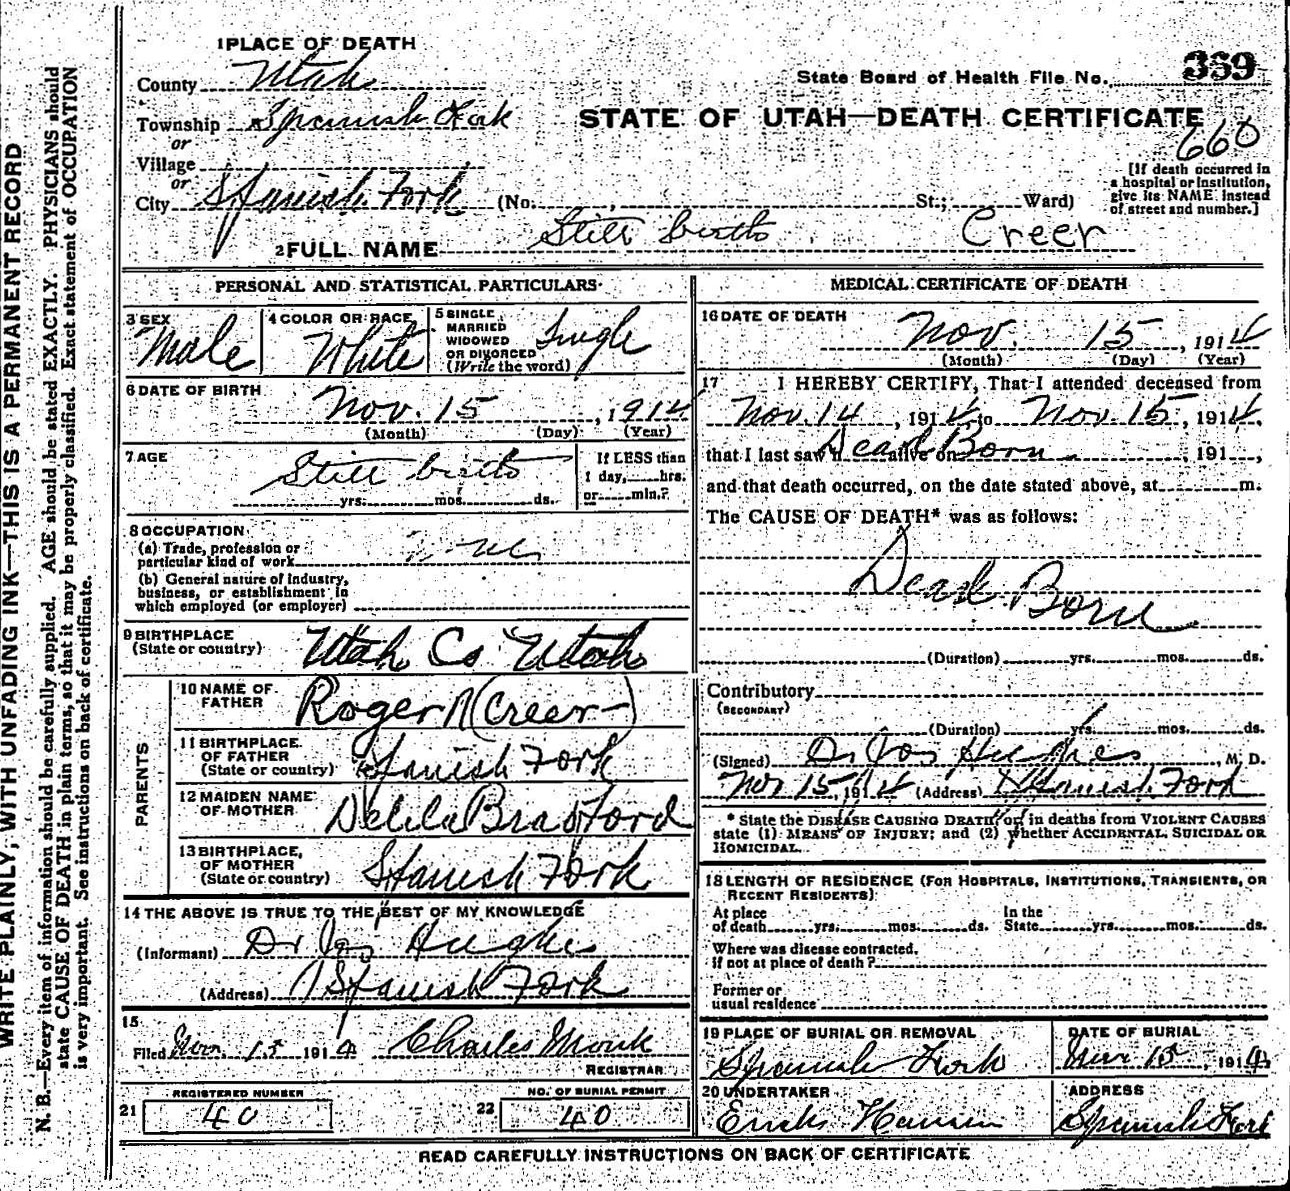 WRITE PLAINLY, WITH UNFADING INK—THIS IS A PERMANENT RECORD
N. B.—Every item of information should be carefully supplied. AGE should be stated EXACTLY. PHYSICIANS should
state CAUSE OF DEATH in plain terms, so that it may be properly classified. Exact statement of OCCUPATION
is very important. See instructions on back of certificate.
1 PLACE OF DEATH
County Utah
State Board of Health File No. 369
Township Spanish Fork
STATE OF UTAH—DEATH CERTIFICATE
or
660
Village
or
City Spanish Fork (No. , St.; Ward)
[If death occurred in
a hospital or institution,
give its NAME instead
of street and number.]
2 FULL NAME Still birth Creer
PERSONAL AND STATISTICAL PARTICULARS
3 SEX
Male
4 COLOR OR RACE
White
5 SINGLE,
MARRIED
WIDOWED
OR DIVORCED
(Write the word)
Single
6 DATE OF BIRTH
Nov. 15, 1914
(Month) (Day) (Year)
7 AGE
Still birth
yrs. mos. ds.
If LESS than
1 day, hrs.
or min.?
8 OCCUPATION
(a) Trade, profession or
particular kind of work
(b) General nature of industry,
business, or establishment in
which employed (or employer)
9 BIRTHPLACE
(State or country)
Utah Co Utah
PARENTS
10 NAME OF
FATHER
Roger N (Creer)
11 BIRTHPLACE
OF FATHER
(State or country)
Spanish Fork
12 MAIDEN NAME
OF MOTHER
Delila Bradford
13 BIRTHPLACE,
OF MOTHER
(State or country)
Spanish Fork
14 THE ABOVE IS TRUE TO THE BEST OF MY KNOWLEDGE
(Informant) Dr Jos Hughes
(Address) Spanish Fork
15
Filed Nov. 15 1914 Charles Monk
REGISTRAR
21
REGISTERED NUMBER
40
22
NO. OF BURIAL PERMIT
40
MEDICAL CERTIFICATE OF DEATH
16 DATE OF DEATH
Nov. 15, 1914
(Month) (Day) (Year)
17 I HEREBY CERTIFY, That I attended deceased from
Nov. 14, 1914, to Nov. 15, 1914,
that I last saw h alive on Dead Born, 191 ,
and that death occurred, on the date stated above, at m.
The CAUSE OF DEATH* was as follows:
Dead Born
(Duration) yrs. mos. ds.
Contributory
(SECONDARY)
(Duration) yrs. mos. ds.
(Signed) Dr Jos Hughes, M. D.
Nov 15, 1914 (Address) Spanish Fork
* State the DISEASE CAUSING DEATH, or, in deaths from VIOLENT CAUSES
state (1) MEANS OF INJURY; and (2) whether ACCIDENTAL, SUICIDAL OR
HOMICIDAL.
18 LENGTH OF RESIDENCE (FOR HOSPITALS, INSTITUTIONS, TRANSIENTS, OR
RECENT RESIDENTS)
At place
of death yrs. mos. ds.
In the
State yrs. mos. ds.
Where was disease contracted,
if not at place of death?
Former or
usual residence
19 PLACE OF BURIAL OR REMOVAL
Spanish Fork
DATE OF BURIAL
Nov 15, 1914
20 UNDERTAKER
Hansen
ADDRESS
Spanish Fork
READ CAREFULLY INSTRUCTIONS ON BACK OF CERTIFICATE